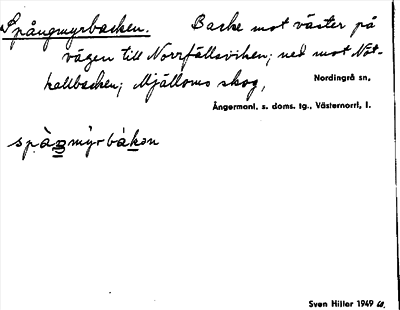 Spångmyrbacken. Backe mot väster på
vägen till Norrfällsviken; ned mot Not-
hallbacken; Mjälloms skog,
Nordingrå sn,
Ångermanl. s. doms. tg., Västernorrl. l.
spàŋmỳrbàkən
Sven Hiller 1949